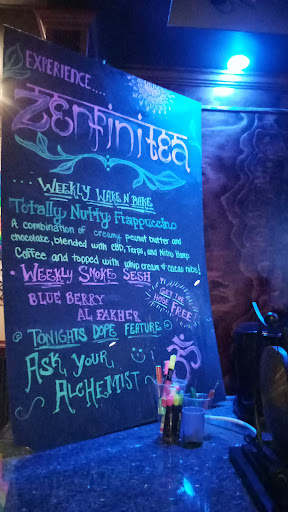 EXPERIENCE....
Zenfinitea
... WEEKLY WAKE N' BAKE
Totally Nutty Frappuccino
A combination of creamy peanut butter and
chocolate, blended with CBD, Terps, and Nitro Hemp
Coffee and topped with whip cream & cacao nibs!
• WEEKLY SMOKE SESH
BLUE BERRY
AL FAKHER
GET THE
HOSE
FREE
TONIGHTS DOPE FEATURE
ASK YOUR
ALCHEMIST
ॐ